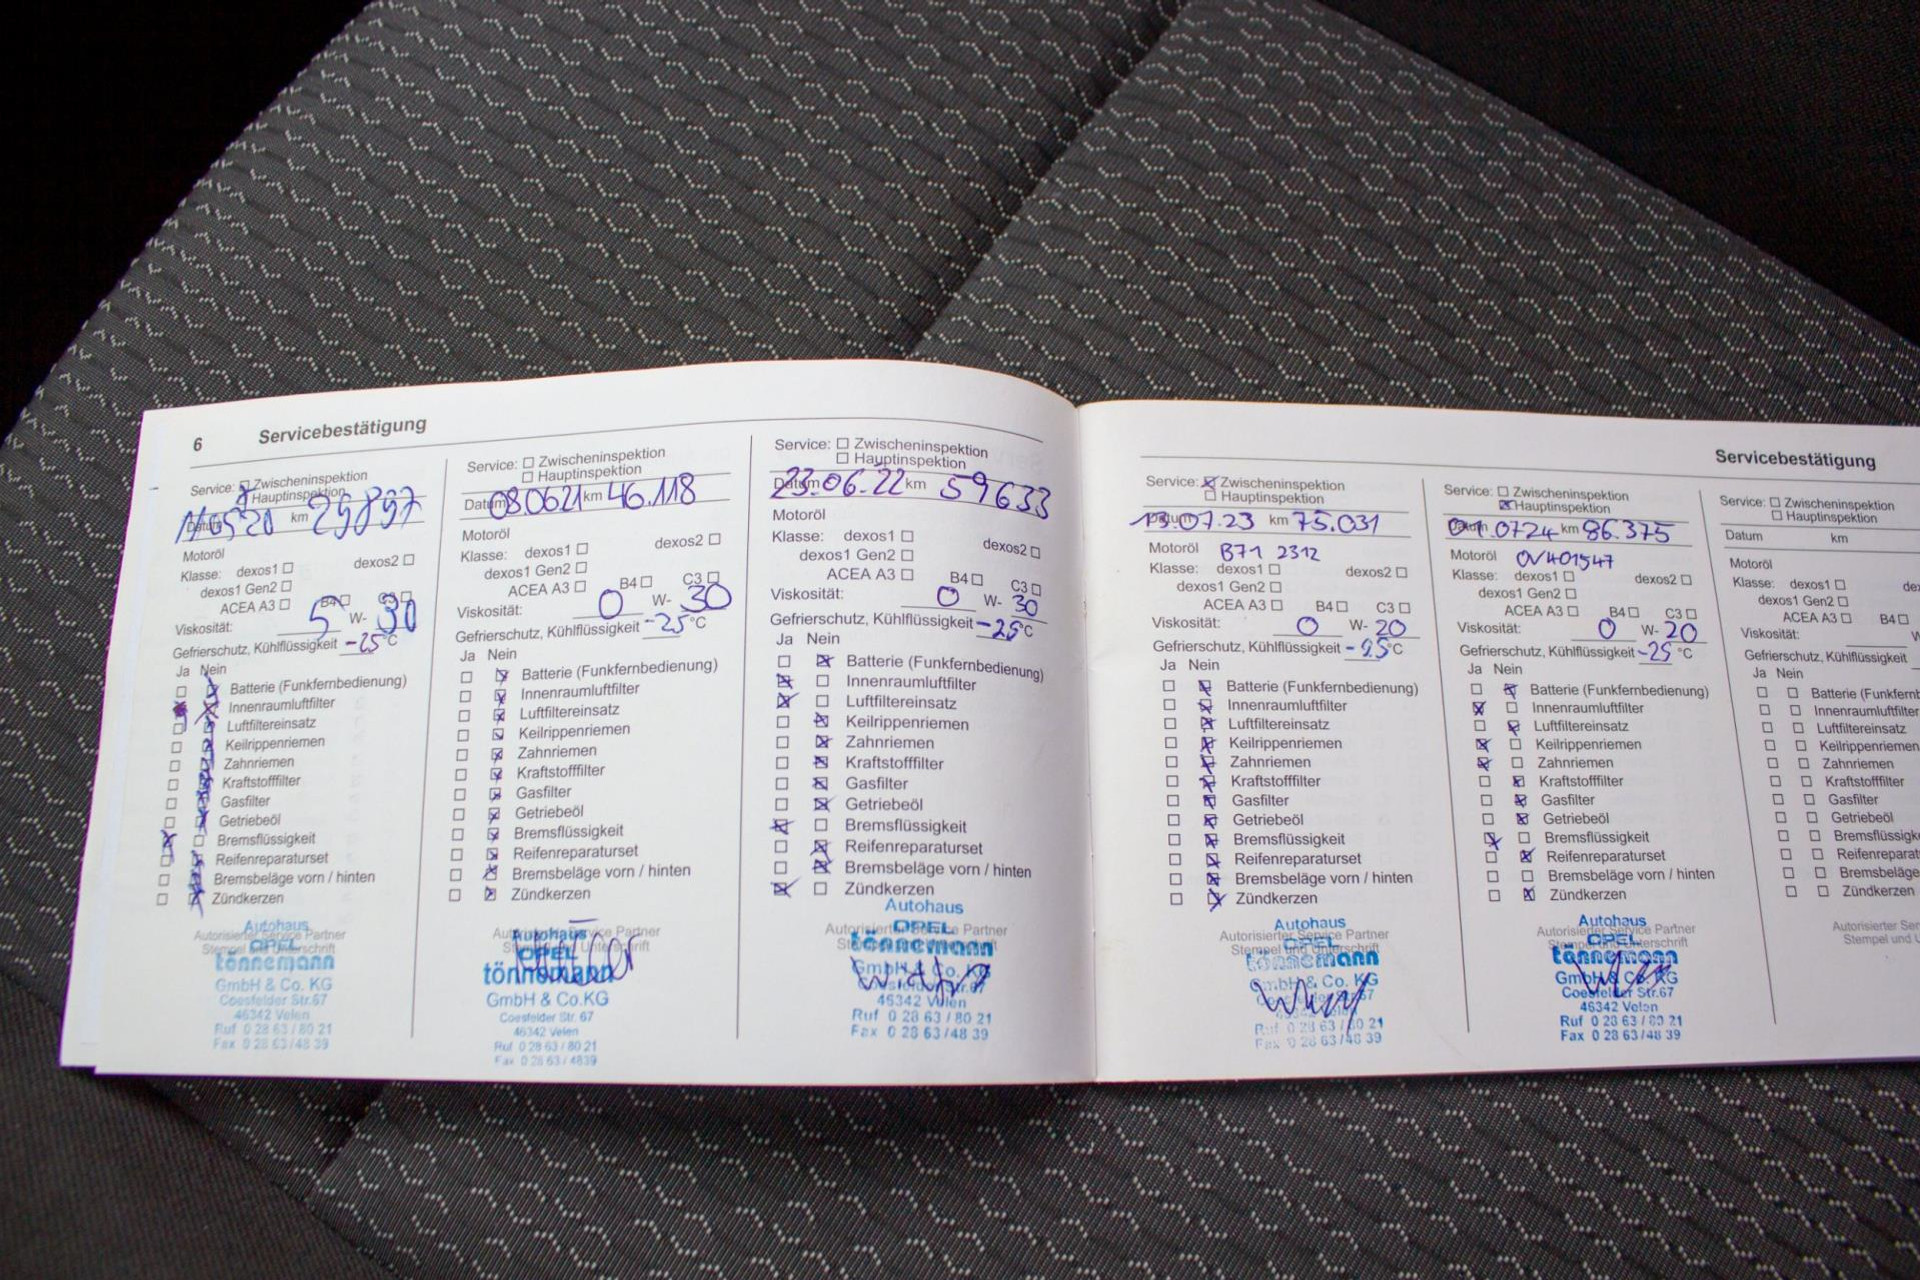 6 Servicebestätigung
Service: Zwischeninspektion
Hauptinspektion
Datum 11.05.20 km 29897
Motoröl
Klasse: dexos1 dexos2
dexos1 Gen2
ACEA A3 B4 C3
Viskosität: 5 W- 30
Gefrierschutz, Kühlflüssigkeit -25 °C
Ja Nein
Batterie (Funkfernbedienung)
Innenraumluftfilter
Luftfiltereinsatz
Keilrippenriemen
Zahnriemen
Kraftstofffilter
Gasfilter
Getriebeöl
Bremsflüssigkeit
Reifenreparaturset
Bremsbeläge vorn / hinten
Zündkerzen
Autorisierter Service Partner
Stempel und Unterschrift
Autohaus
OPEL
tönnemann
GmbH & Co. KG
Coesfelder Str.67
46342 Velen
Ruf 0 28 63 / 80 21
Fax 0 28 63 / 48 39
Service: Zwischeninspektion
Hauptinspektion
Datum 08.06.21 km 46.118
Motoröl
Klasse: dexos1 dexos2
dexos1 Gen2
ACEA A3 B4 C3
Viskosität: 0 W- 30
Gefrierschutz, Kühlflüssigkeit -25 °C
Ja Nein
Batterie (Funkfernbedienung)
Innenraumluftfilter
Luftfiltereinsatz
Keilrippenriemen
Zahnriemen
Kraftstofffilter
Gasfilter
Getriebeöl
Bremsflüssigkeit
Reifenreparaturset
Bremsbeläge vorn / hinten
Zündkerzen
Autorisierter Service Partner
Stempel und Unterschrift
Autohaus
OPEL
tönnemann
GmbH & Co.KG
Coesfelder Str. 67
46342 Velen
Ruf 0 28 63 / 80 21
Fax 0 28 63 / 4839
Service: Zwischeninspektion
Hauptinspektion
Datum 23.06.22 km 59633
Motoröl
Klasse: dexos1 dexos2
dexos1 Gen2
ACEA A3 B4 C3
Viskosität: 0 W- 30
Gefrierschutz, Kühlflüssigkeit -25 °C
Ja Nein
Batterie (Funkfernbedienung)
Innenraumluftfilter
Luftfiltereinsatz
Keilrippenriemen
Zahnriemen
Kraftstofffilter
Gasfilter
Getriebeöl
Bremsflüssigkeit
Reifenreparaturset
Bremsbeläge vorn / hinten
Zündkerzen
Autorisierter Service Partner
Autohaus
OPEL
tönnemann
GmbH & Co. KG
Coesfelder Str.67
46342 Velen
Ruf 0 28 63 / 80 21
Fax 0 28 63 / 48 39
Servicebestätigung
Service: Zwischeninspektion
Hauptinspektion
Datum 13.07.23 km 75.031
Motoröl B71 2312
Klasse: dexos1 dexos2
dexos1 Gen2
ACEA A3 B4 C3
Viskosität: 0 W- 20
Gefrierschutz, Kühlflüssigkeit -25 °C
Ja Nein
Batterie (Funkfernbedienung)
Innenraumluftfilter
Luftfiltereinsatz
Keilrippenriemen
Zahnriemen
Kraftstofffilter
Gasfilter
Getriebeöl
Bremsflüssigkeit
Reifenreparaturset
Bremsbeläge vorn / hinten
Zündkerzen
Autorisierter Service Partner
Stempel und Unterschrift
Autohaus
OPEL
tönnemann
GmbH & Co. KG
Ruf 0 28 63 / 80 21
Fax 0 28 63 / 48 39
Service: Zwischeninspektion
Hauptinspektion
Datum 01.07.24 km 86.375
Motoröl OV401547
Klasse: dexos1 dexos2
dexos1 Gen2
ACEA A3 B4 C3
Viskosität: 0 W- 20
Gefrierschutz, Kühlflüssigkeit -25 °C
Ja Nein
Batterie (Funkfernbedienung)
Innenraumluftfilter
Luftfiltereinsatz
Keilrippenriemen
Zahnriemen
Kraftstofffilter
Gasfilter
Getriebeöl
Bremsflüssigkeit
Reifenreparaturset
Bremsbeläge vorn / hinten
Zündkerzen
Autorisierter Service Partner
Stempel und Unterschrift
Autohaus
OPEL
tönnemann
GmbH & Co. KG
Coesfelder Str.67
46342 Velen
Ruf 0 28 63 / 80 21
Fax 0 28 63 / 48 39
Service: Zwischeninspektion
Hauptinspektion
Datum km
Motoröl
Klasse: dexos1 de
dexos1 Gen2
ACEA A3 B4
Viskosität: W
Gefrierschutz, Kühlflüssigkeit
Ja Nein
Batterie (Funkfernb
Innenraumluftfilter
Luftfiltereinsatz
Keilrippenriemen
Zahnriemen
Kraftstofffilter
Gasfilter
Getriebeöl
Bremsflüssigke
Reifenreparat
Bremsbeläge
Zündkerzen
Autorisierter Ser
Stempel und U